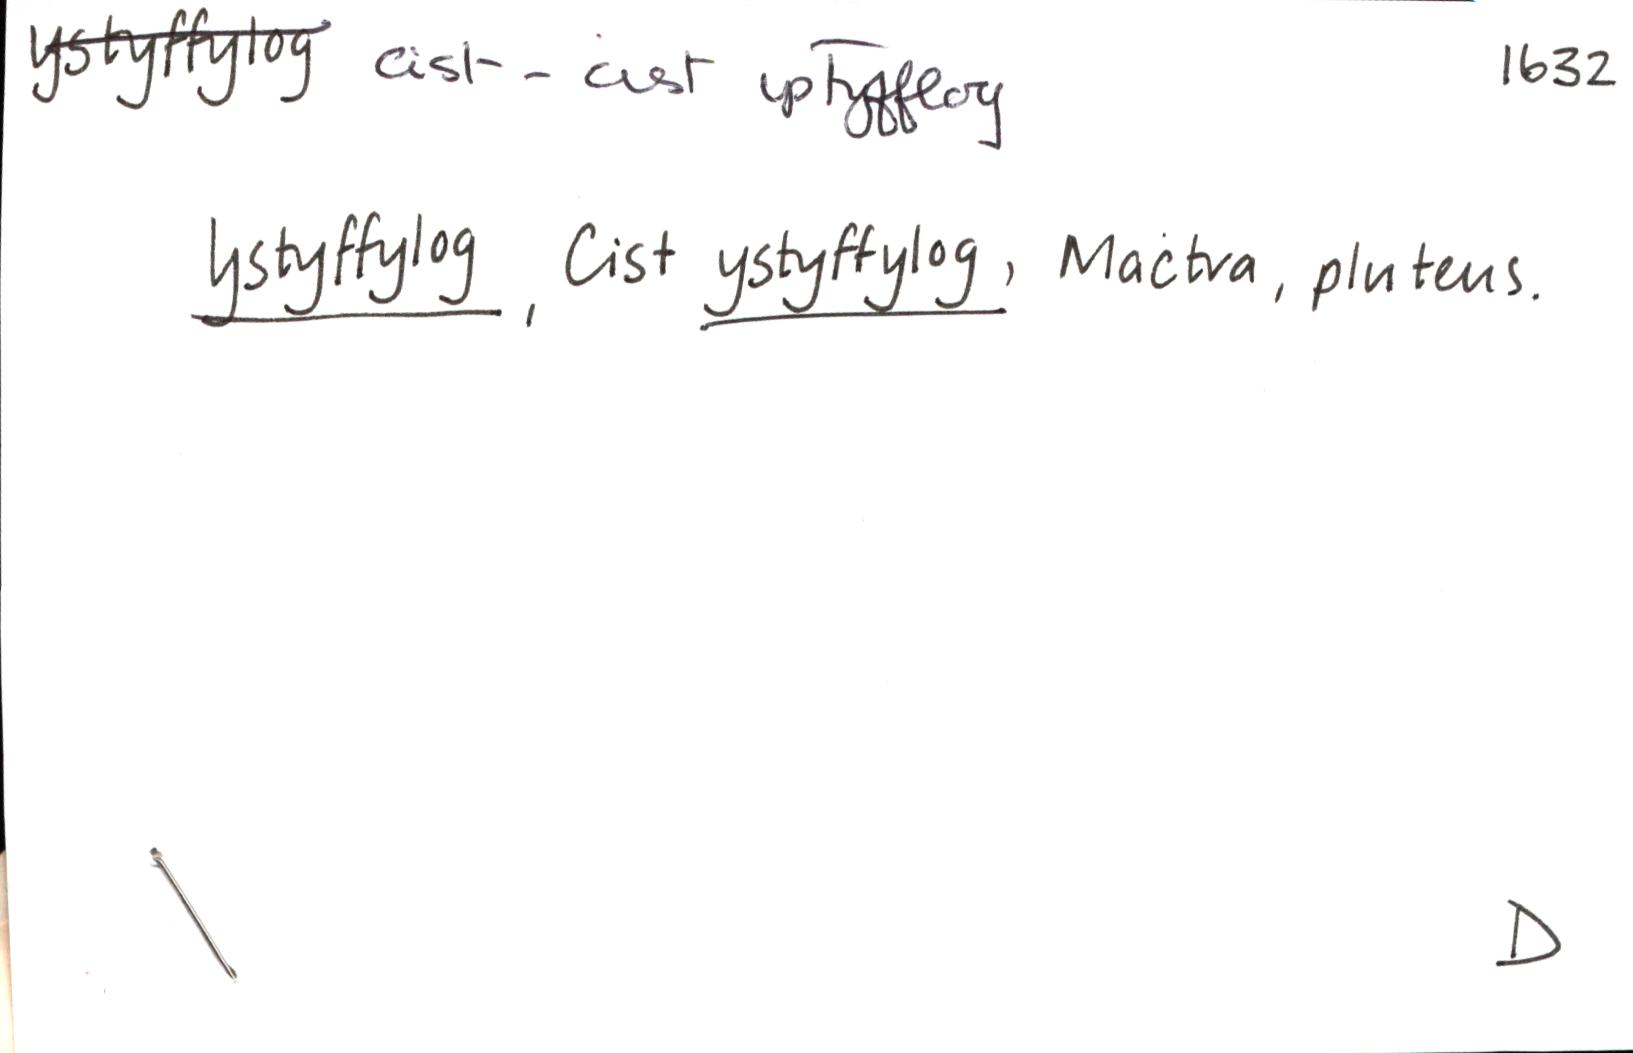 ystyffylog cist - cist ystyfflog 1632
ystyffylog, Cist ystyffylog, Mactra, pluteus.
D